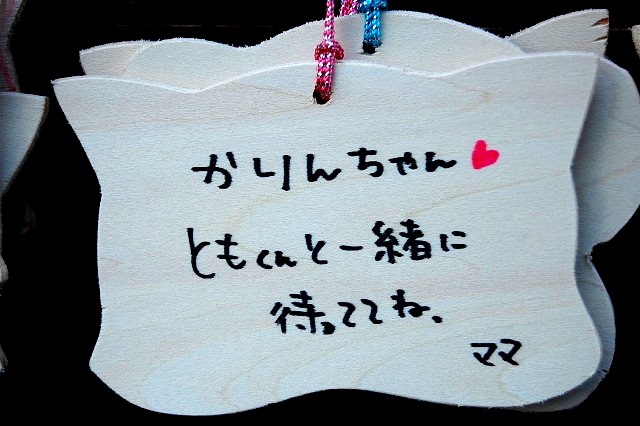 かりんちゃん♥
ともくんと一緒に
待っててね、
ママ